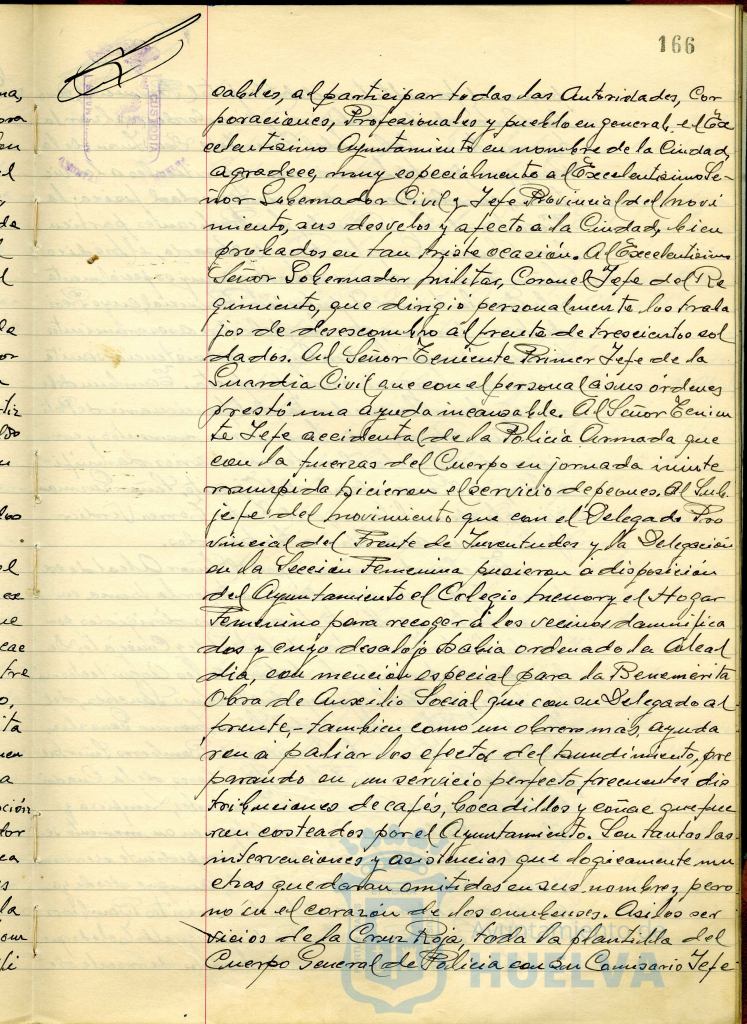 166
cables, al participar todas las Autoridades, Cor
poraciones, Profesionales y pueblo en general, el Ex
celentísimo Ayuntamiento en nombre de la Ciudad,
agradece, muy especialmente al Excelentísimo Se-
ñor Gobernador Civil y Jefe Provincial del Movi
miento, sus desvelos y afecto a la Ciudad, bien
probados en tan triste ocasión. Al Excelentísimo
Señor Gobernador Militar, Coronel Jefe del Re
gimiento, que dirigió personalmente los traba
jos de desescombro al frente de trescientos sol
dados. Al Señor Teniente Primer Jefe de la
Guardia Civil que con el personal a sus órdenes
prestó una ayuda incansable. Al Señor Tenien
te Jefe accidental de la Policía Armada que
con la fuerzas del Cuerpo en jornada ininte
rrumpida hicieron el servicio de peones. Al Sub-
jefe del Movimiento que con el Delegado Pro
vincial del Frente de Juventudes y la Delegación
en la Sección Femenina pusieron a disposición
del Ayuntamiento el Colegio Menor y el Hogar
Femenino para recoger a los vecinos damnifica
dos y cuyo desalojo había ordenado la Alcal
día, con mención especial para la Benemérita
Obra de Auxilio Social que con su Delegado al
frente, - tambien como un obrero más, ayuda
ron a paliar los efectos del hundimiento, pre
parando en un servicio perfecto, frecuentes dis
tribuciones de cafés, bocadillos y coñac que fue
ron costeados por el Ayuntamiento. Son tantas las
intervenciones y asistencias que logicamente mu
chas quedarán omitidas en sus nombres, pero
no en el corazón de los onubenses. Asi los ser
vicios de la Cruz Roja, toda la plantilla del
Cuerpo General de Policia con su Comisario Jefe
Ayuntamiento de
HUELVA